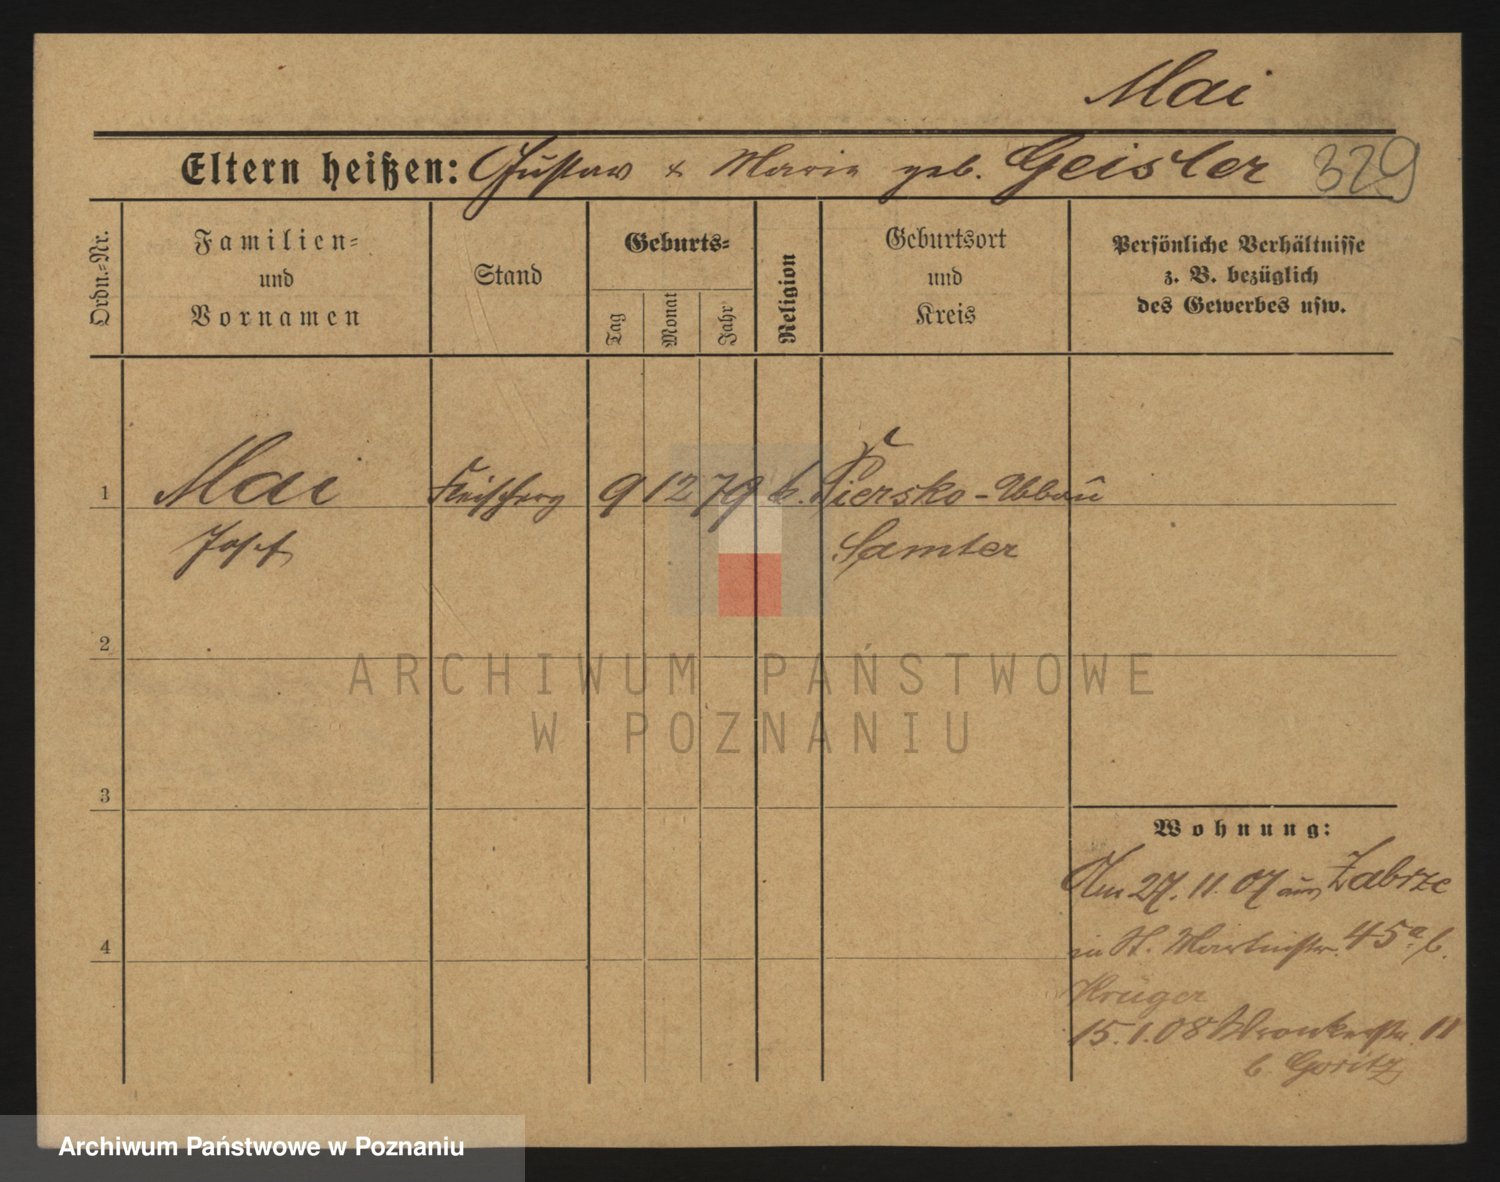 Mai
Eltern heißen: Gustav & Marie geb. Geisler 329
Ordn.=Nr.
Familien=
und
Vornamen
Stand
Geburts=
Tag
Monat
Jahr
Religion
Geburtsort
und
Kreis
Persönliche Verhältnisse
z. B. bezüglich
des Gewerbes usw.
1 Mai 9 12 79 k. Piersko-Abbau
Josef Samter
2
3
4
Wohnung:
Am 27. 11. 07 aus Zabrze
in St. Martinstr. 45a b.
Krüger
15. 1. 08 Wronkerstr. 11
b. Goritz
ARCHIWUM PAŃSTWOWE
W POZNANIU
Archiwum Państwowe w Poznaniu